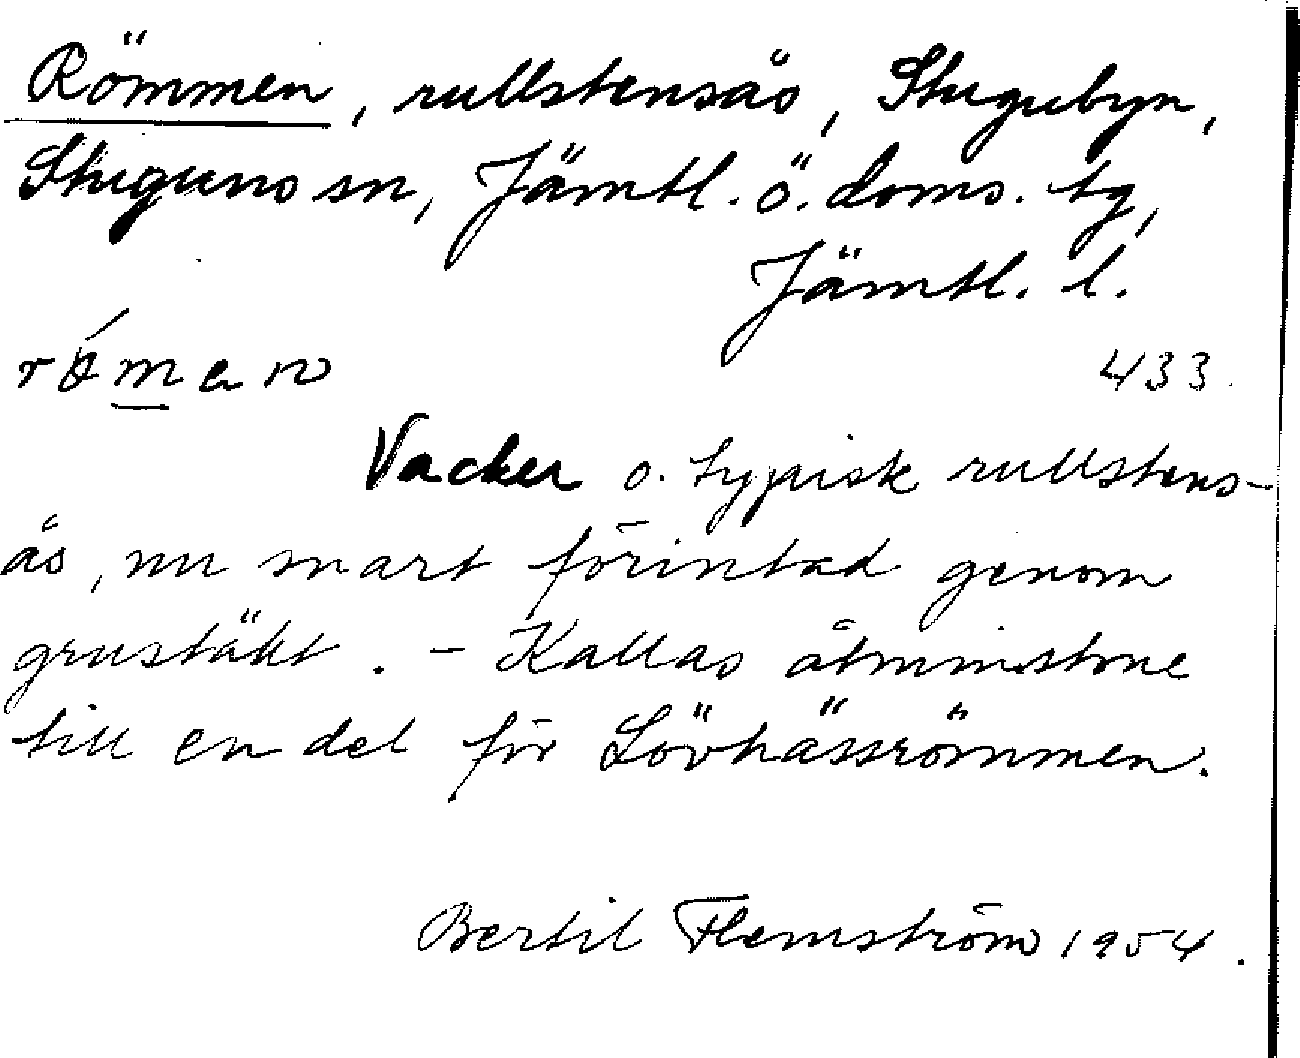 Römmen, rullstensås, Stugubyn,
Stuguns sn, Jämtl. ö. doms. tg,
Jämtl. l.
433.
Vacker o. typisk rullstens-
ås, nu snart förintad genom
grustäkt. - Kallas åtminstone
till en del för Lövhässrömmen.
Bertil Flemström 1954.